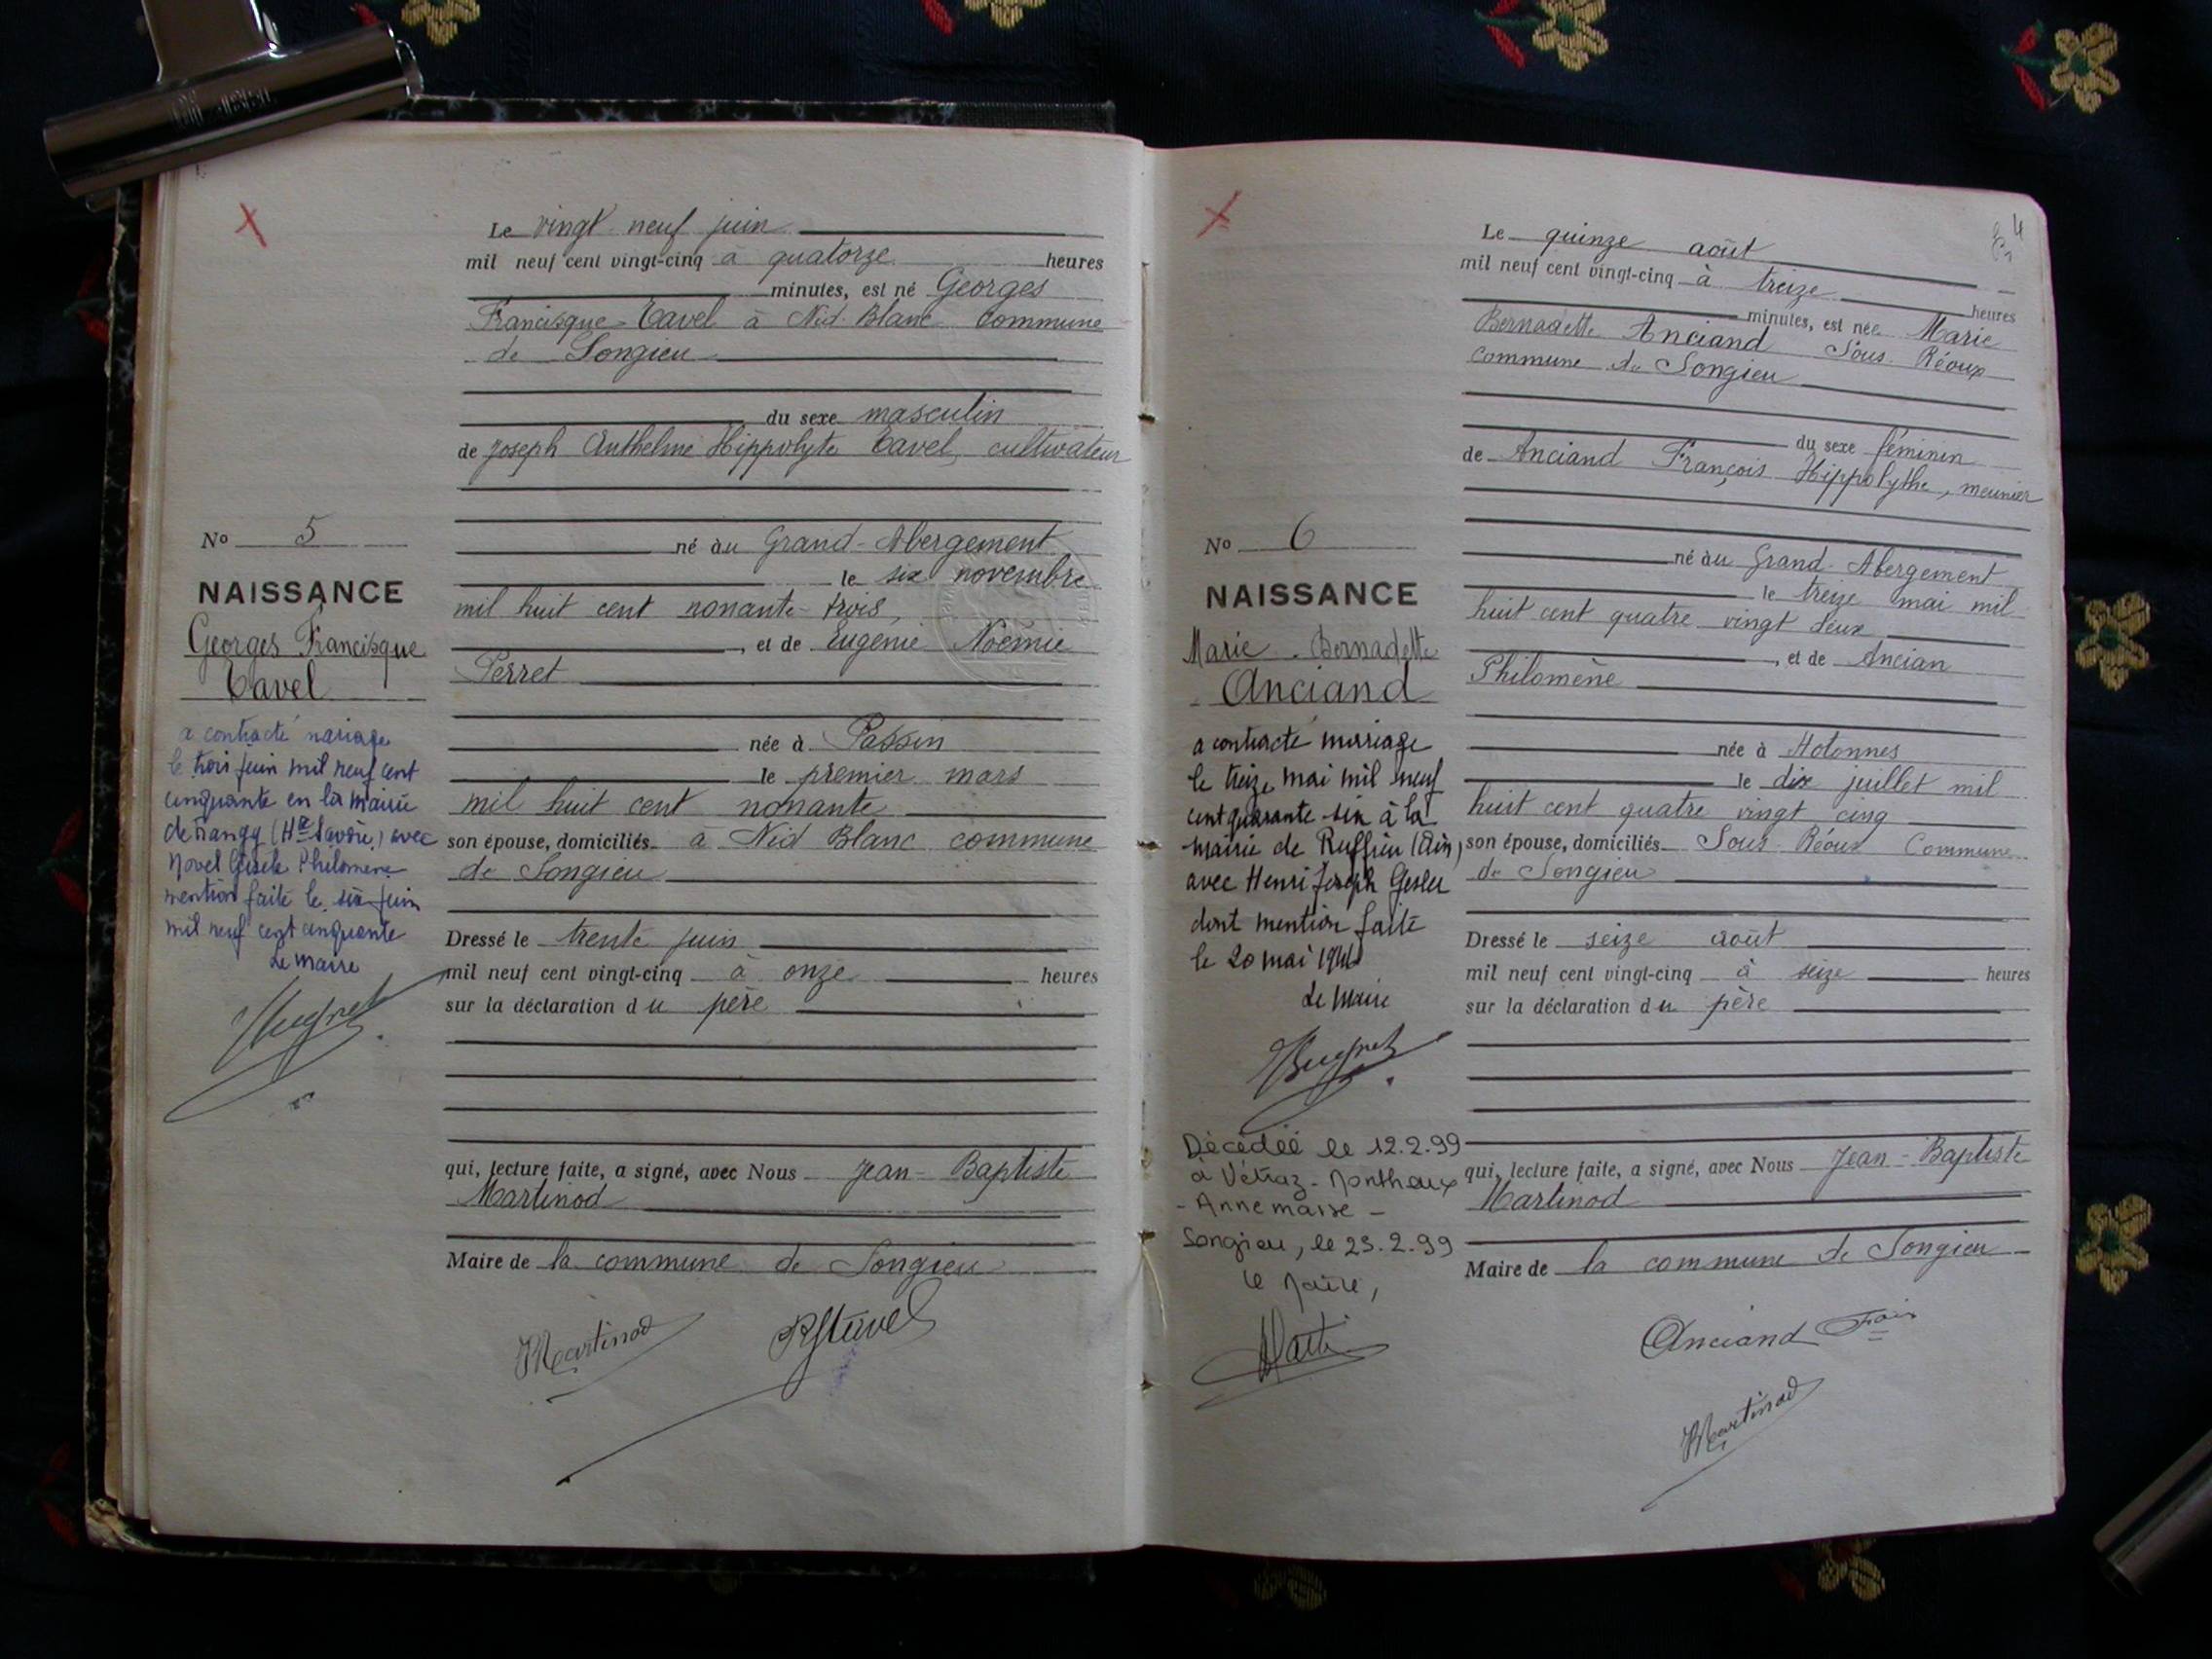 Le vingt neuf juin
mil neuf cent vingt-cinq à quatorze heures
minutes, est né Georges
Francisque Tavel à Nid Blanc commune
de Songieu
du sexe masculin
de Joseph Anthelme Hippolyte Tavel, cultivateur
né àu Grand-Abergement
le six novembre
mil huit cent nonante-trois,
, et de Eugénie Noëmie
Perret
née à Passin
le premier mars
mil huit cent nonante
son épouse, domiciliés à Nid Blanc commune
de Songieu
Dressé le trente juin
mil neuf cent vingt-cinq à onze heures
sur la déclaration du père
qui, lecture faite, a signé, avec Nous Jean-Baptiste
Martinod
Maire de la commune de Songieu
Martinod
No 5
NAISSANCE
Georges Francisque
Tavel
a contracté mariage
le trois juin mil neuf cent
cinquante en la mairie
de (Hte Savoie) avec
Novel Gisèle Philomène
mention faite le six juin
mil neuf cent cinquante
Le maire
4
Le quinze août
mil neuf cent vingt-cinq à treize heures
minutes, est née Marie
Bernadette Anciand Sous Réoux
commune de Songieu
du sexe féminin
de Anciand François Hippolythe, meunier
né àu Grand-Abergement
le treize mai mil
huit cent quatre vingt deux
, et de Ancian
Philomène
née à Hotonnes
le dix juillet mil
huit cent quatre vingt cinq
son épouse, domiciliés Sous Réoux Commune
de Songieu
Dressé le seize août
mil neuf cent vingt-cinq à seize heures
sur la déclaration du père
qui, lecture faite, a signé, avec Nous Jean-Baptiste
Martinod
Maire de la commune de Songieu
Anciand Fois
Martinod
No 6
NAISSANCE
Marie Bernadette
Anciand
a contracté mariage
le treize mai mil neuf
cent quarante-six à la
mairie de Ruffieu (Ain)
avec Henri Joseph Gesler
dont mention faite
le 20 mai 1946
Le Maire
Décédée le 12.2.99
à Vétraz-Monthoux
- Annemasse -
Songieu, le 23.2.99
Le Maire,